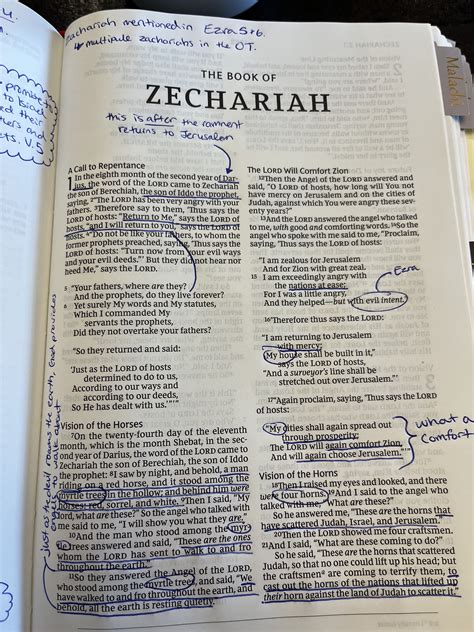 Zechariah mentioned in Ezra 5+6.
↳ multiple zechariahs in the OT.
Malachi
THE BOOK OF
ZECHARIAH
this is after the remnant
returns to Jerusalem
A Call to Repentance
1 In the eighth month of the second year of Dar-
ius, the word of the LORD came to Zechariah
the son of Berechiah, the son of Iddo the prophet,
saying, 2"The LORD has been very angry with your
fathers. 3Therefore say to them, 'Thus says the
LORD of hosts: "Return to Me," says the LORD of
hosts, "and I will return to you," says the LORD of
hosts. 4"Do not be like your fathers, to whom the
former prophets preached, saying, 'Thus says the
LORD of hosts: "Turn now from your evil ways
and your evil deeds."' But they did not hear nor
heed Me," says the LORD.
5 "Your fathers, where are they?
And the prophets, do they live forever?
6 Yet surely My words and My statutes,
Which I commanded My
servants the prophets,
Did they not overtake your fathers?
"So they returned and said:
'Just as the LORD of hosts
determined to do to us,
According to our ways and
according to our deeds,
So He has dealt with us.'"'"
Vision of the Horses
7On the twenty-fourth day of the eleventh
month, which is the month Shebat, in the sec-
ond year of Darius, the word of the LORD came to
Zechariah the son of Berechiah, the son of Iddo
the prophet: 8I saw by night, and behold, a man
riding on a red horse, and it stood among the
myrtle trees in the hollow; and behind him were
horses: red, sorrel, and white. 9Then I said, "My
lord, what are these?" So the angel who talked with
me said to me, "I will show you what they are."
10And the man who stood among the myrtle
trees answered and said, "These are the ones
whom the LORD has sent to walk to and fro
throughout the earth."
11So they answered the Angel of the LORD,
who stood among the myrtle trees, and said, "We
have walked to and fro throughout the earth, and
behold, all the earth is resting quietly."
The LORD Will Comfort Zion
12Then the Angel of the LORD answered and
said, "O LORD of hosts, how long will You not
have mercy on Jerusalem and on the cities of
Judah, against which You were angry these sev-
enty years?"
13And the LORD answered the angel who talked
to me, with good and comforting words. 14So the
angel who spoke with me said to me, "Proclaim,
saying, 'Thus says the LORD of hosts:
"I am zealous for Jerusalem
And for Zion with great zeal.
15 I am exceedingly angry with
the nations at ease;
For I was a little angry,
And they helped—but with evil intent."
Ezra
16'Therefore thus says the LORD:
"I am returning to Jerusalem
with mercy;
My house shall be built in it,"
says the LORD of hosts,
"And a surveyor's line shall be
stretched out over Jerusalem."'
17"Again proclaim, saying, 'Thus says the LORD
of hosts:
"My cities shall again spread out
through prosperity;
The LORD will again comfort Zion,
And will again choose Jerusalem."'"
what a
comfort
Vision of the Horns
18Then I raised my eyes and looked, and there
were four horns. 19And I said to the angel who
talked with me, "What are these?"
So he answered me, "These are the horns that
have scattered Judah, Israel, and Jerusalem."
20Then the LORD showed me four craftsmen.
21And I said, "What are these coming to do?"
So he said, "These are the horns that scattered
Judah, so that no one could lift up his head; but
the craftsmen are coming to terrify them, to
cast out the horns of the nations that lifted up
their horn against the land of Judah to scatter it."